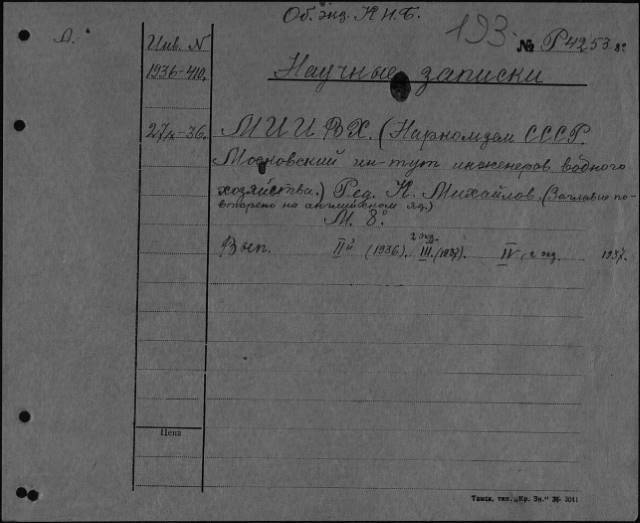 Об. экз. К Н. Б.
193.
№ Р4253 8°
Д.
Инв. N
1936-410.
Научные записки
27/IX-36.
МИИВХ. (Наркомзем СССР.
Московский ин-тут инженеров водного
хозяйства.) Ред. К. Михайлов. (Заглавие по-
вторено на английском яз.)
М. 8°.
2 экз.
Вып. IIй (1936). III. (1937). IV, 2 экз. 1937.
Цена
Томск, тип. „Кр. Зн." 36- 3011